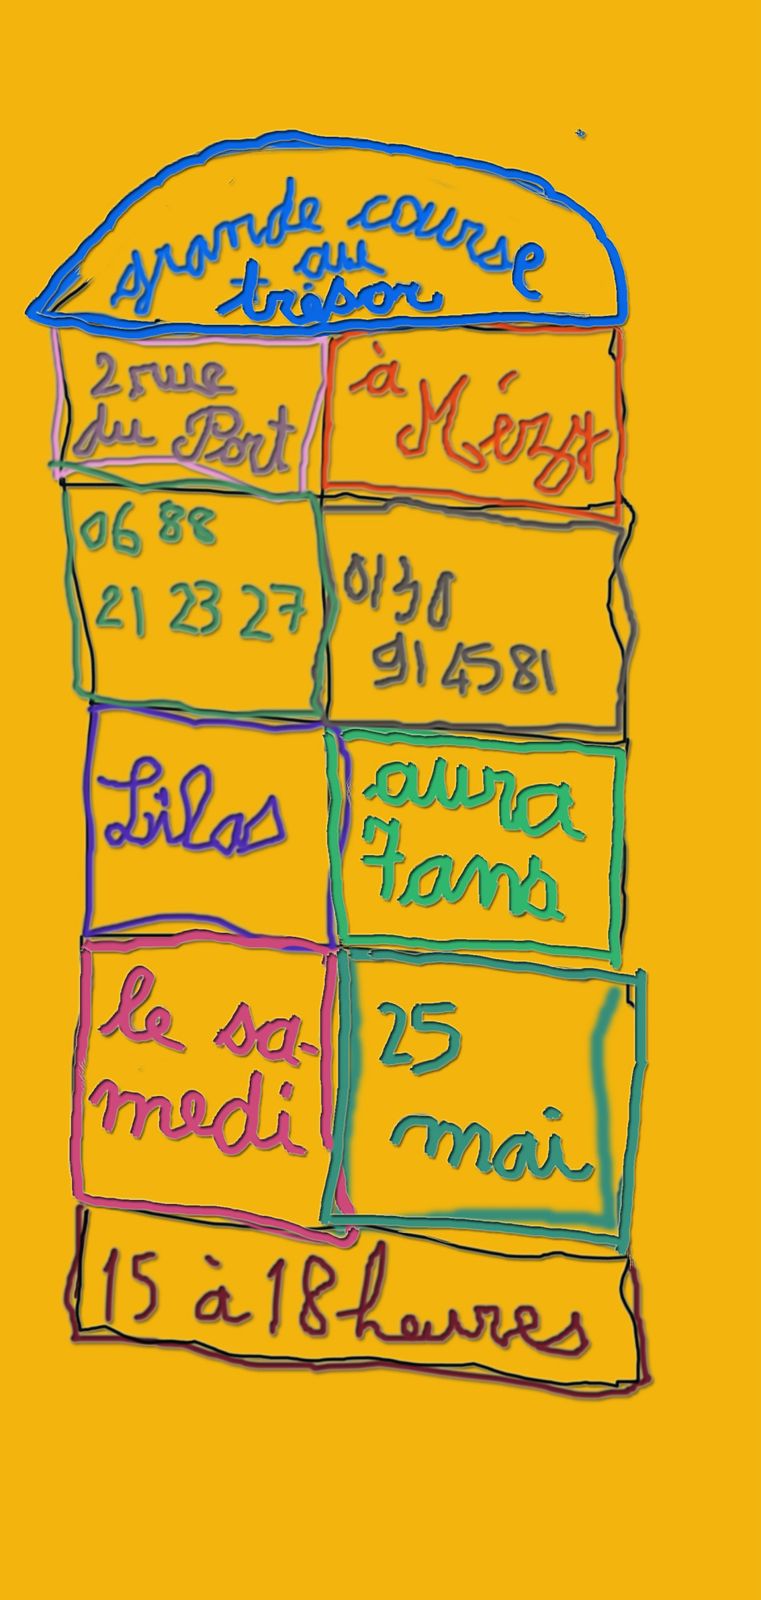 grande course
au
trésor
2 rue
du Port
à
Mézy
06 88
21 23 27
0130
91 45 81
Lilas
aura
7 ans
le sa-
medi
25
mai
15 à 18 heures